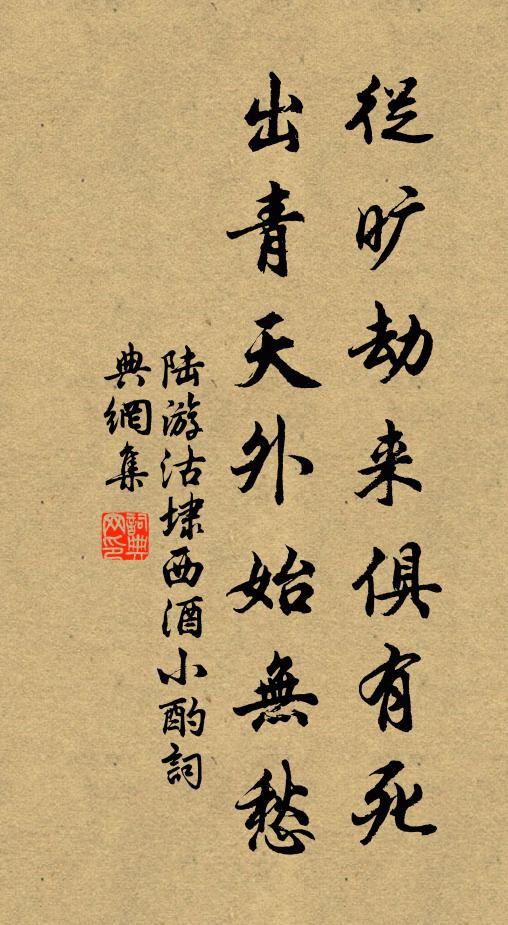 從旷劫来俱有死
出青天外始無愁
陆游沽埭西酒小酌詞
典網集
詞典
网印